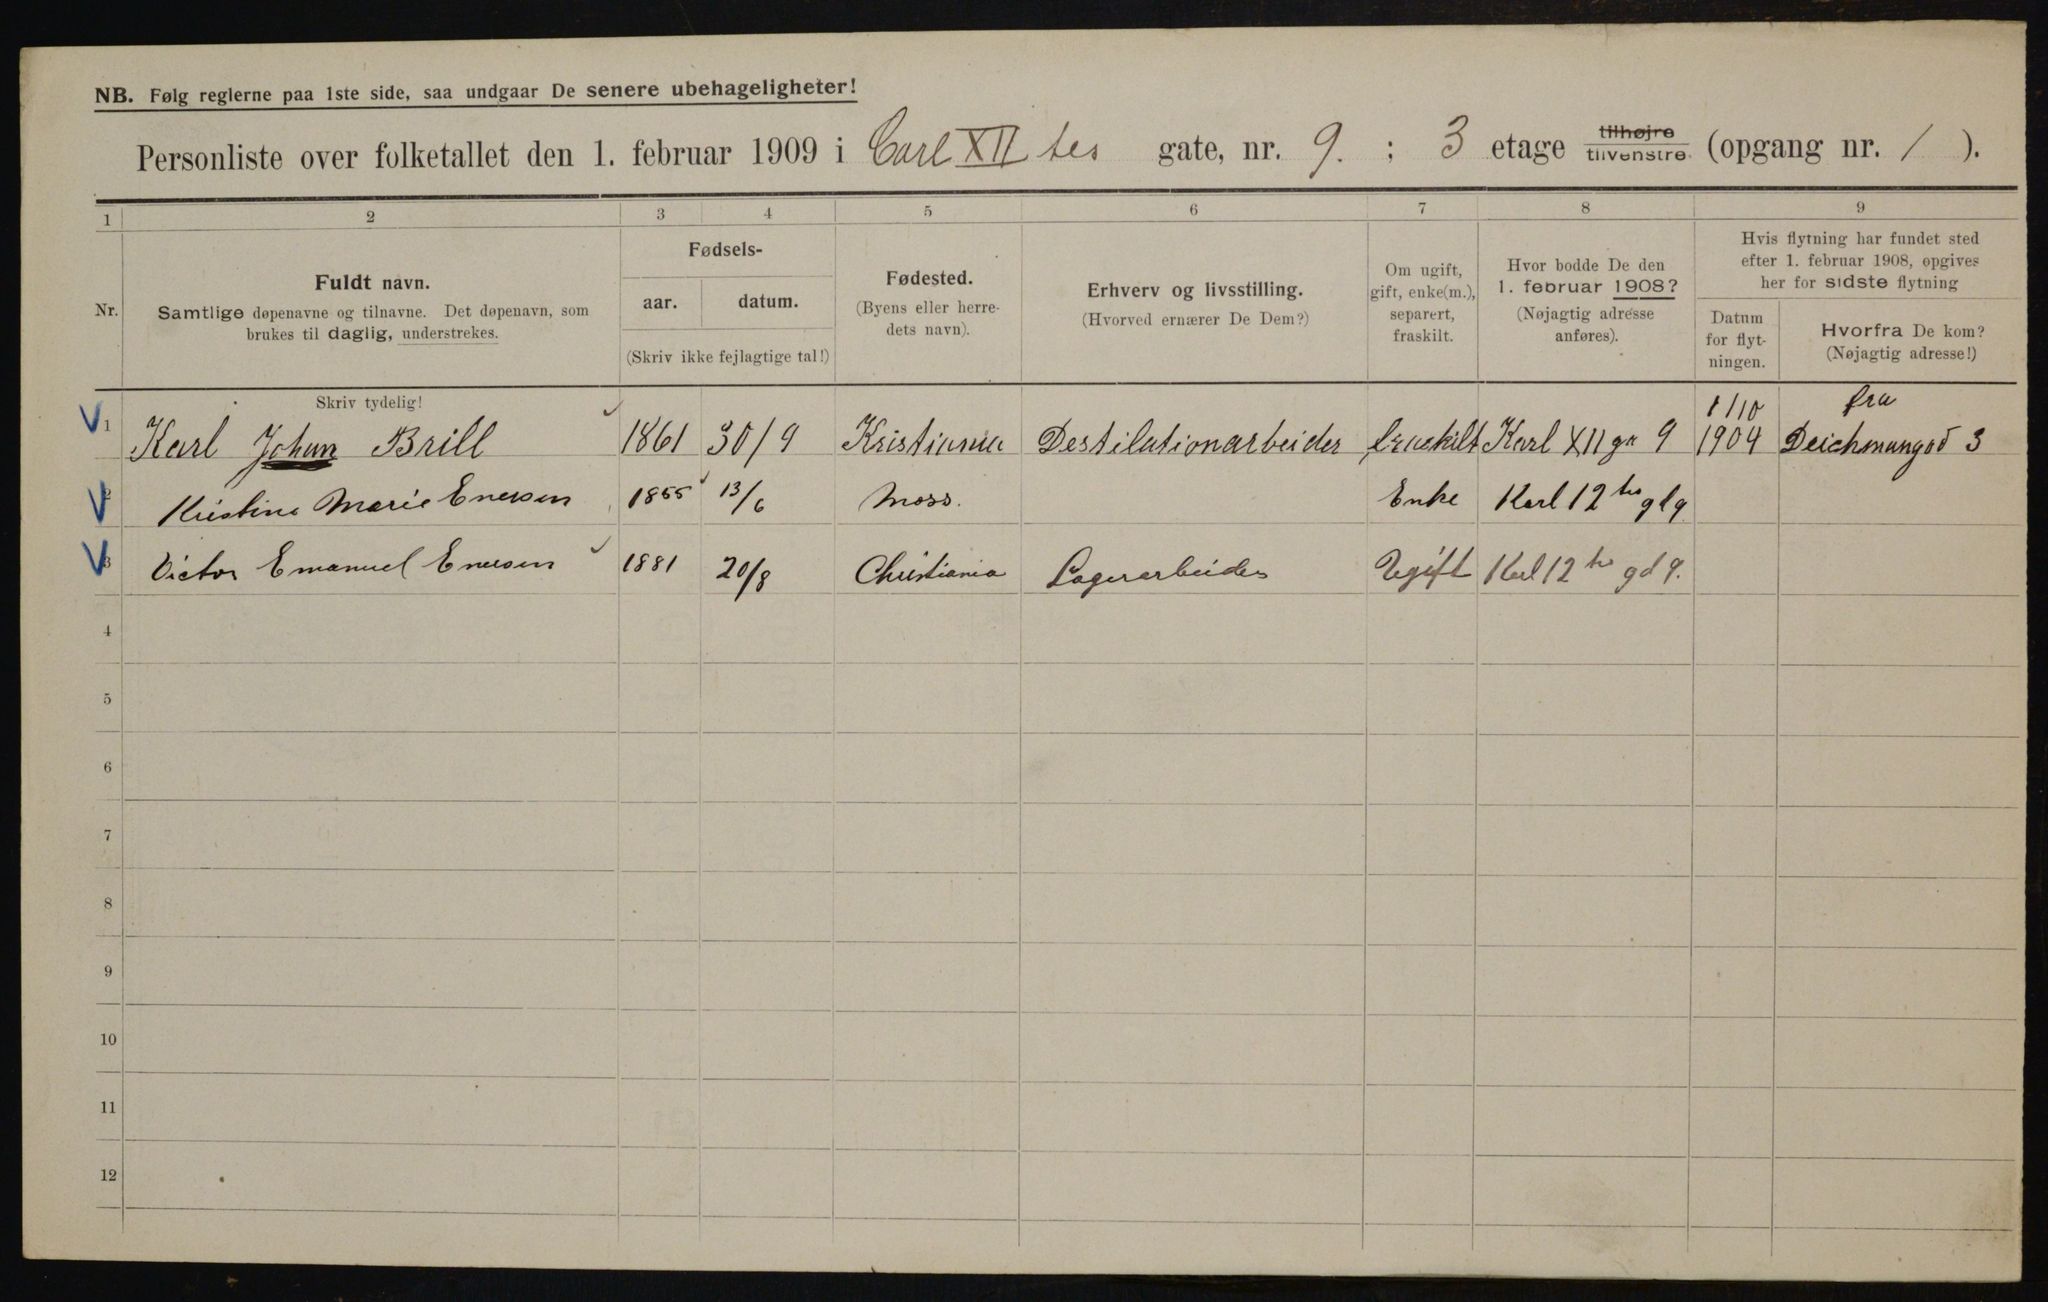 NB. Følg reglerne paa 1ste side, saa undgaar De senere ubehageligheter!
Personliste over folketallet den 1. februar 1909 i Carl XII tes gate, nr. 9. ; 3 etage tilhøjre tilvenstre (opgang nr. 1 ).
1 2 3 4 5 6 7 8 9
Nr.
Fuldt navn.
Samtlige døpenavne og tilnavne. Det døpenavn, som
brukes til daglig, understrekes.
Skriv tydelig!
Fødsels-
aar. datum.
(Skriv ikke fejlagtige tal!)
Fødested.
(Byens eller herre-
dets navn).
Erhverv og livsstilling.
(Hvorved ernærer De Dem?)
Om ugift,
gift, enke(m.),
separert,
fraskilt.
Hvor bodde De den
1. februar 1908?
(Nøjagtig adresse
anføres).
Hvis flytning har fundet sted
efter 1. februar 1908, opgives
her for sidste flytning
Datum
for flyt-
ningen.
Hvorfra De kom?
(Nøjagtig adresse!)
1/10 fra
1 Karl Johan Brill 1861 30/9 Kristiania Destilationarbeider fraskilt Karl XII ga 9 1904 Deichmangad 3
2 Kristine Marie Enersen 1855 13/6 Moss. Enke Karl 12 tes gd 9
3 Victor Emanuel Enersen 1881 20/8 Christiania Lagerarbeider Ugift Karl 12 tes gd 9.
4
5
6
7
8
9
10
11
12